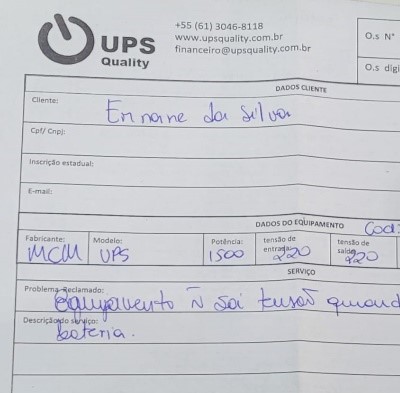 UPS
Quality
+55 (61) 3046-8118
www.upsquality.com.br
financeiro@upsquality.com.br
O.s N°
O.s digi
DADOS CLIENTE
Cliente: da Silva
Cpf/ Cnpj:
Inscrição estadual:
E-mail:
DADOS DO EQUIPAMENTO Cod:
Fabricante: MCM Modelo: UPS Potência: 1500 tensão de entrada: 220 tensão de saída: 220
SERVIÇO
Problema Reclamado:
equipamento ñ sai tensão quand
Descrição do serviço:
bateria.